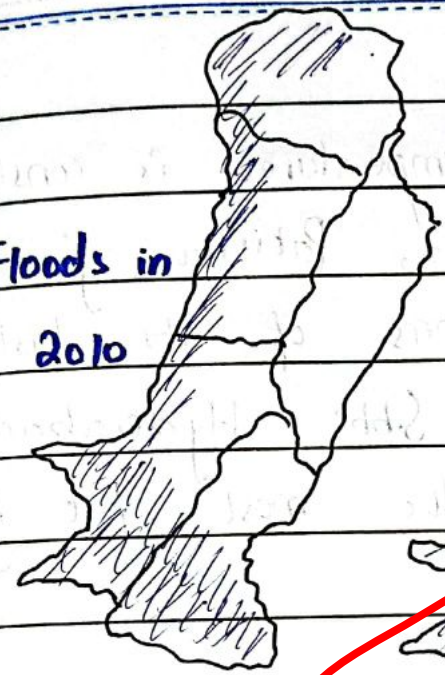 Floods in
2010